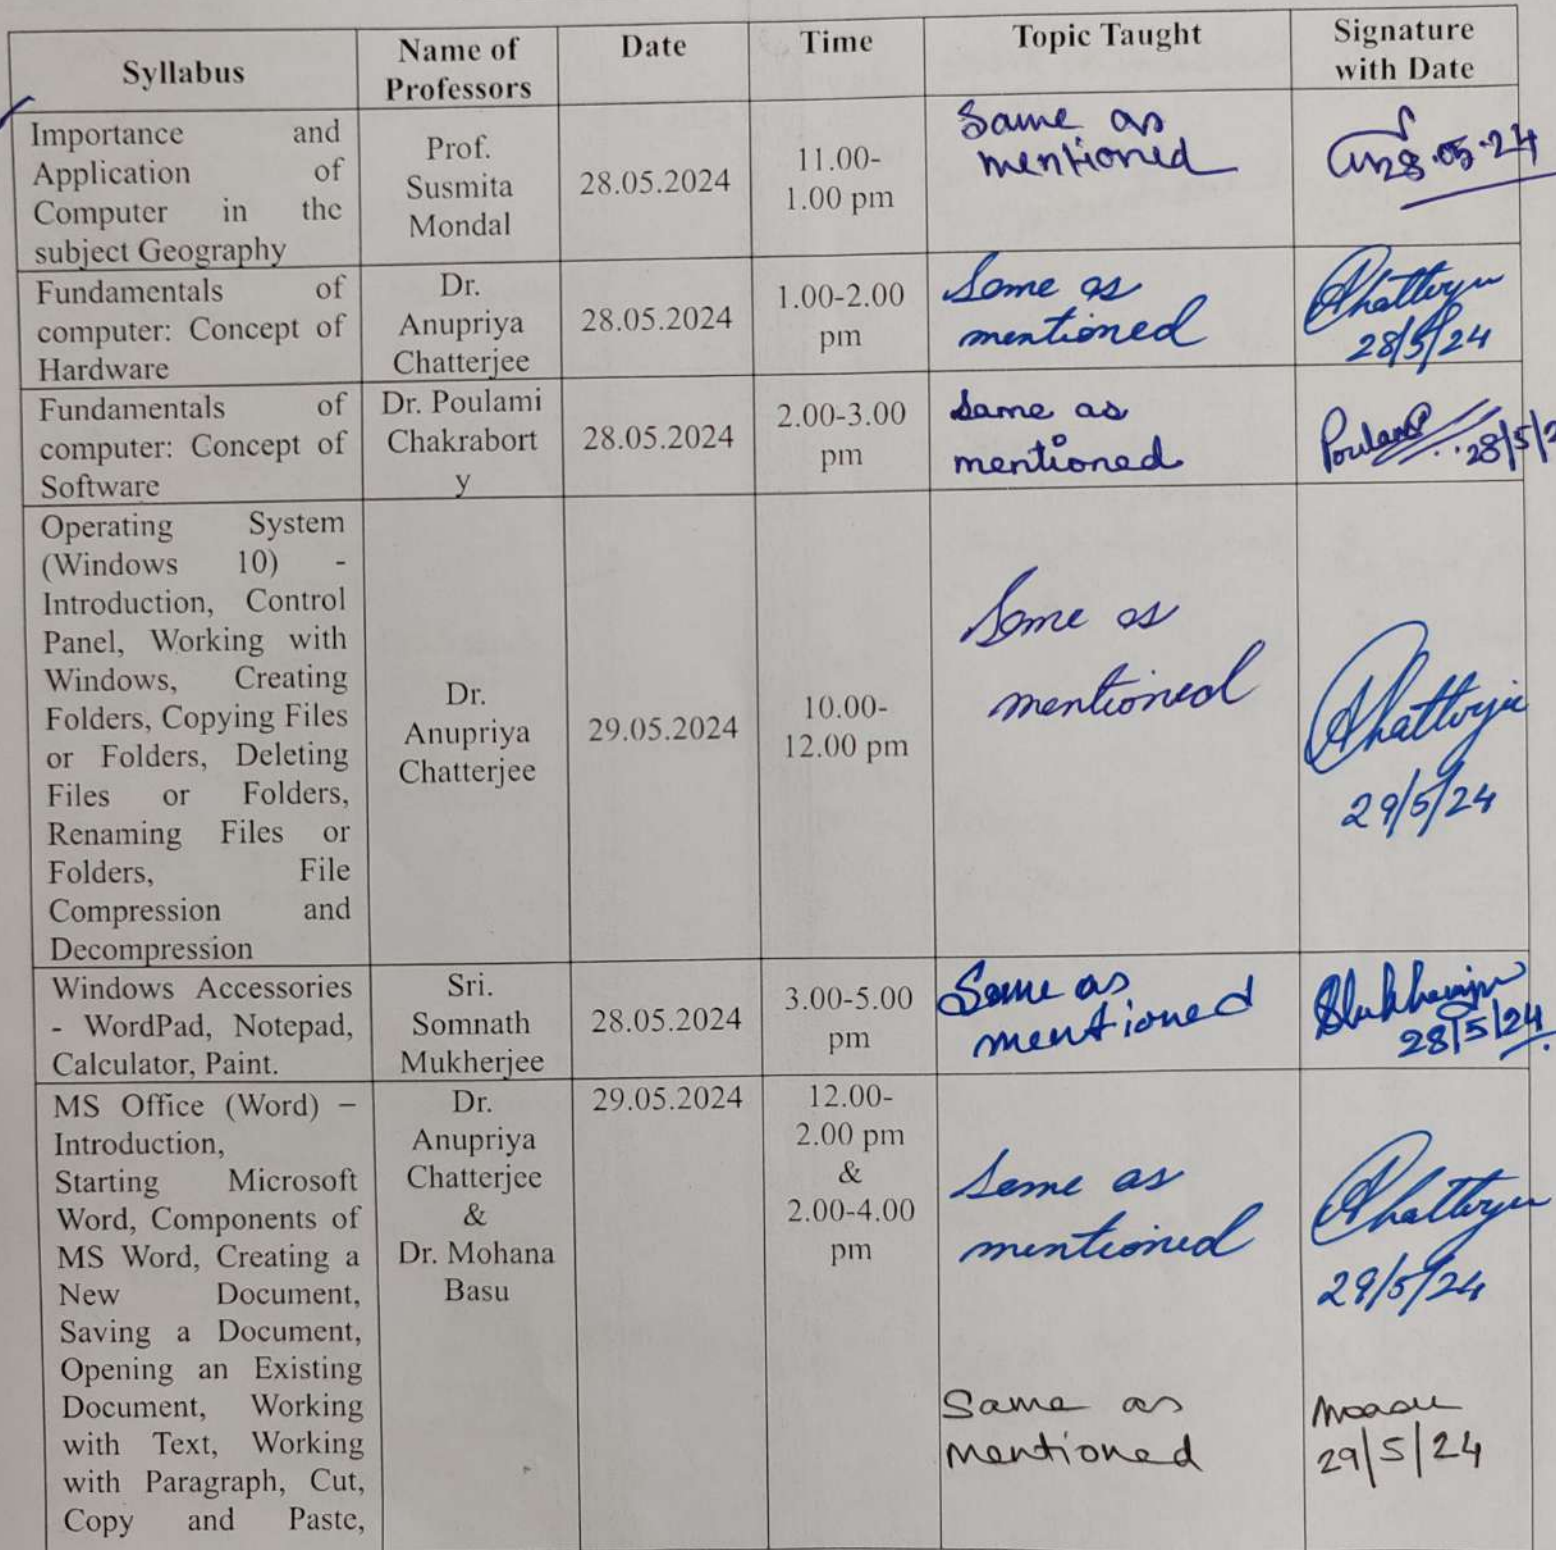 Syllabus
Name of
Professors
Date
Time
Topic Taught
Signature
with Date
Importance and
Application of
Computer in the
subject Geography
Prof.
Susmita
Mondal
28.05.2024
11.00-
1.00 pm
Same as
mentioned
28.05.24
Fundamentals of
computer: Concept of
Hardware
Dr.
Anupriya
Chatterjee
28.05.2024
1.00-2.00
pm
Same as
mentioned
AChatterjee
28/5/24
Fundamentals of
computer: Concept of
Software
Dr. Poulami
Chakrabort
y
28.05.2024
2.00-3.00
pm
Same as
mentioned
28/5/2
Operating System
(Windows 10) -
Introduction, Control
Panel, Working with
Windows, Creating
Folders, Copying Files
or Folders, Deleting
Files or Folders,
Renaming Files or
Folders, File
Compression and
Decompression
Dr.
Anupriya
Chatterjee
29.05.2024
10.00-
12.00 pm
Same as
mentioned
AChatterjee
29/5/24
Windows Accessories
- WordPad, Notepad,
Calculator, Paint.
Sri.
Somnath
Mukherjee
28.05.2024
3.00-5.00
pm
Same as
mentioned
SMukherjee
28/5/24
MS Office (Word) –
Introduction,
Starting Microsoft
Word, Components of
MS Word, Creating a
New Document,
Saving a Document,
Opening an Existing
Document, Working
with Text, Working
with Paragraph, Cut,
Copy and Paste,
Dr.
Anupriya
Chatterjee
&
Dr. Mohana
Basu
29.05.2024
12.00-
2.00 pm
&
2.00-4.00
pm
Same as
mentioned
AChatterjee
29/5/24
Same as
mentioned
MBasu
29/5/24